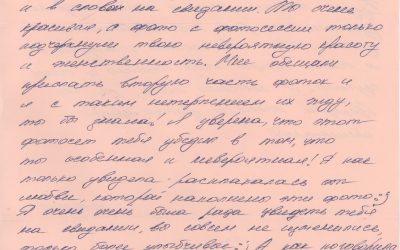 и в словах на свидании. Ты очень
красивая, а фото с фотосессии только
подчеркнули твою невероятную красоту
и женственность. Мне обещали
прислать вторую часть фоток и
я с таким нетерпением их жду,
ты бы знала! Я уверена, что этот
фотосет тебя убедил в том, что
ты особенная и невероятная! Я как
только увидела расплакалась от
любви, которой наполнены эти фото :)
Я очень очень была рада увидеть тебя
на свидании, ты совсем не изменилась,
только более улыбчивая :) А как